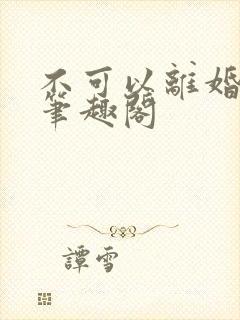 不可以離婚
筆趣閣
譚雪